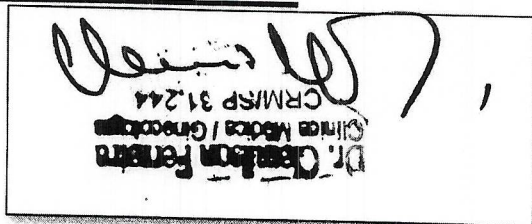 Dr. Clemilson Ferreira
Clínica Médica / Ginecologia
CRM/SP 31.244